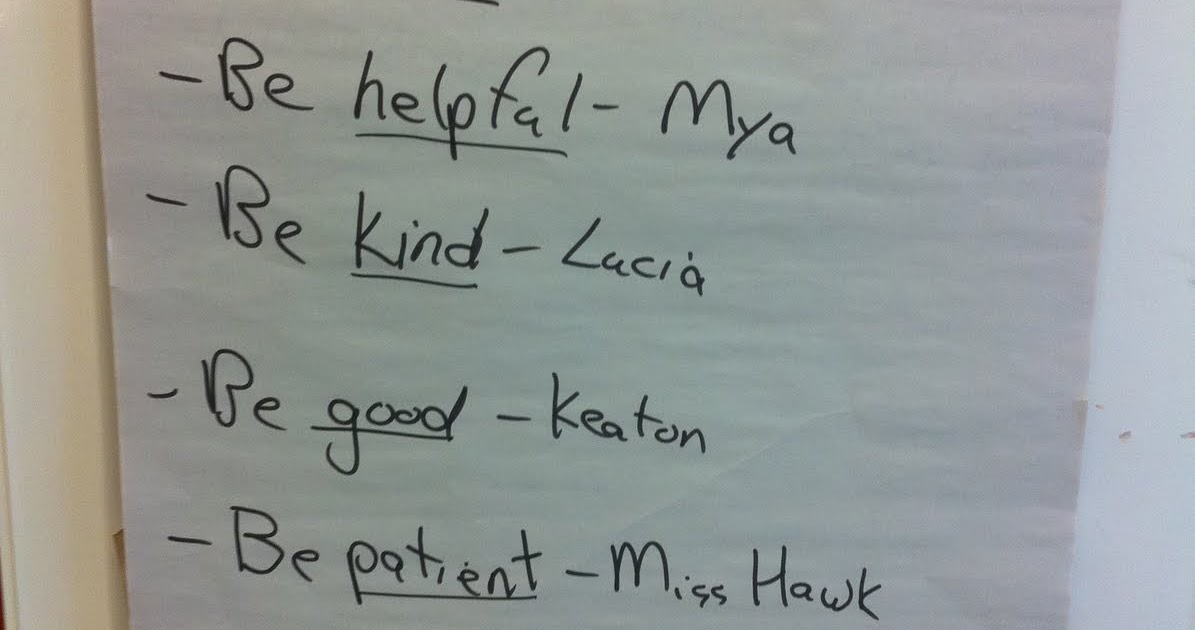 - Be helpful - Mya
- Be kind - Lucia
- Be good - Keaton
- Be patient - Miss Hawk